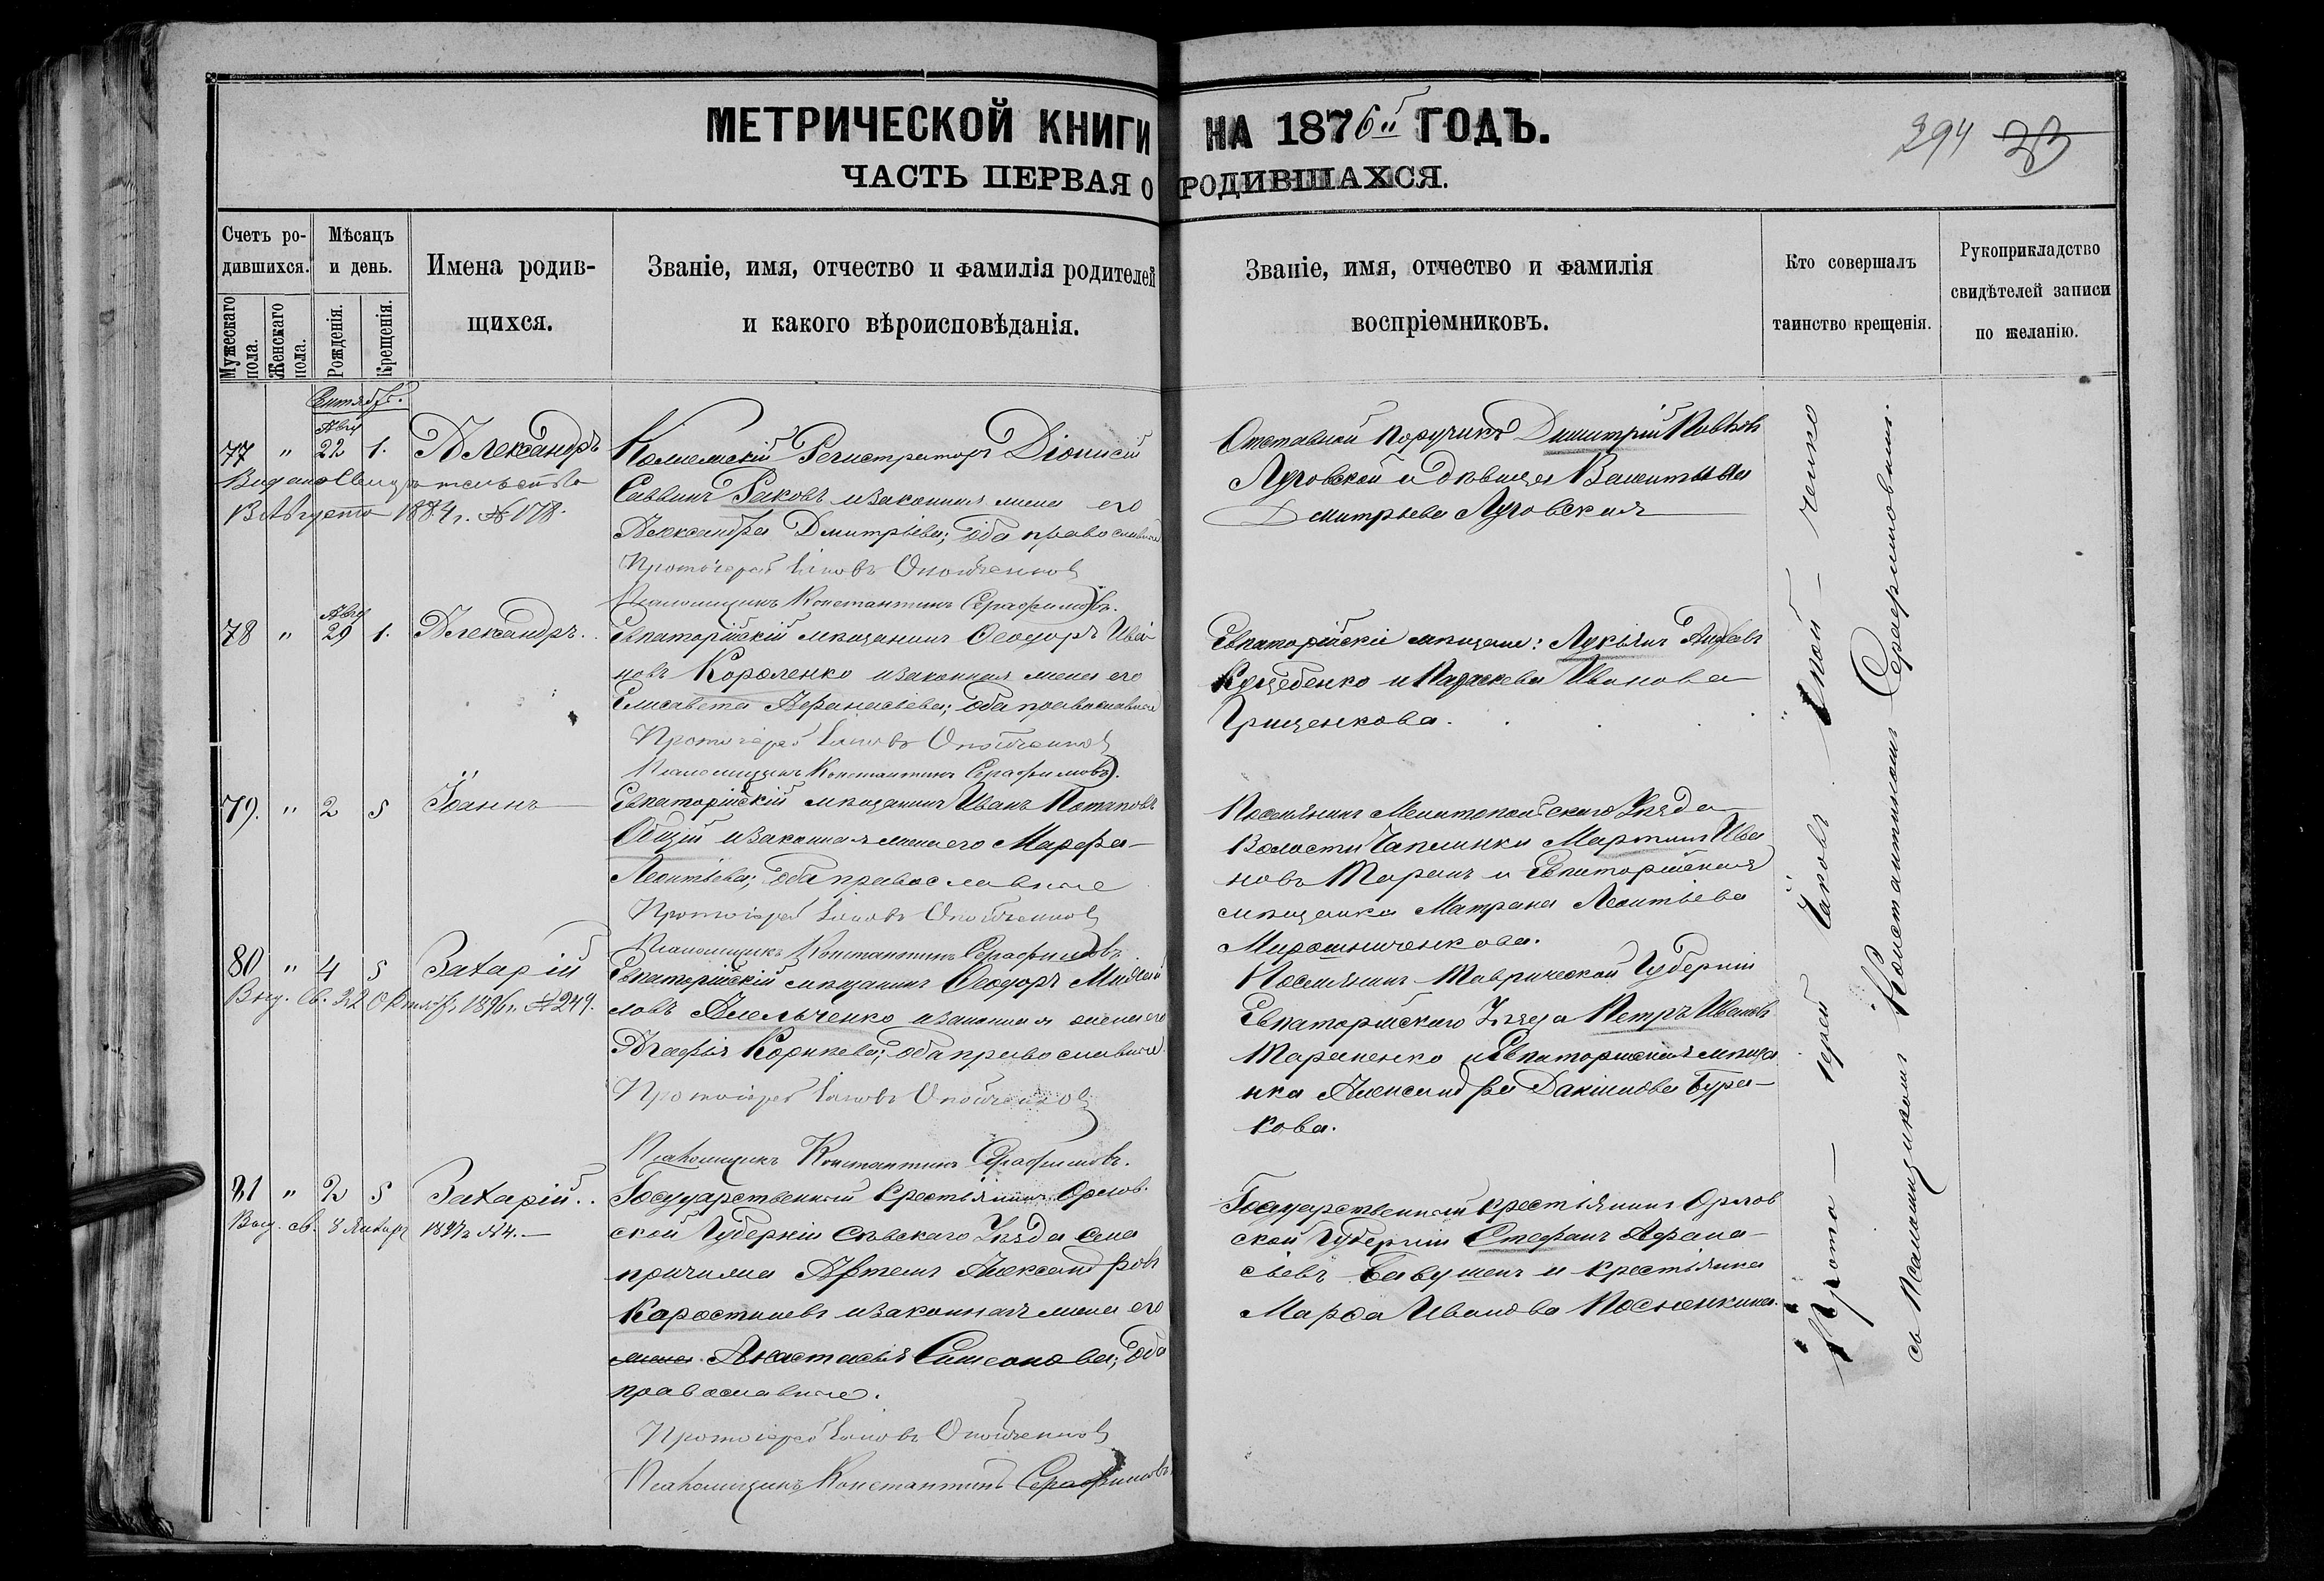 МЕТРИЧЕСКОЙ КНИГИ НА 1876й ГОДЪ.
394
ЧАСТЬ ПЕРВАЯ О РОДИВШАХСЯ.
Счетъ ро-
дившихся.
Мужескаго пола.
Женскаго пола.
Мѣсяцъ
и день.
Рожденія.
Крещенія.
Имена родив-
щихся.
Званіе, имя, отчество и фамилія родителей
и какого вѣроисповѣданія.
Званіе, имя, отчество и фамилія
воспріемниковъ.
Кто совершалъ
таинство крещенія.
Рукоприкладство
свидѣтелей записи
по желанію.
Сентябр.
Авгу
77 " 22 1. Александръ
Выдано Свидѣтельство
В Августѣ 1884г. № 178.
Коллежскій Регистраторъ Діонисій
Саввинъ Раковъ и законная жена его
Александра Дмитрьева; оба православные
Протоіерей Іаковъ
Псаломщикъ Константинъ Серафимовъ.
Отставной Поручикъ Димитрій
Луговской и дѣвица Валентина
Дмитрьева Луговская
Авгу
78 " 29 1. Александръ.
Евпаторійскій мѣщанинъ Ѳеодоръ Ива-
новъ Короленко и законная жена его
Елисавета Афанасьева; оба православные
Протоіерей Іаковъ
Псаломщикъ Константинъ Серафимовъ.
Евпаторійскіе мѣщане: Лукьянъ
и Параскева Иванова
Грищенкова.
79. " 2 5 Іоаннъ
Евпаторійскій мѣщанинъ Иванъ Потаповъ
Общій и законная жена его Марфа
Леонтьева; оба православные
Протоіерей Іаковъ
Псаломщикъ Константинъ Серафимовъ.
Поселянинъ Мелитопольскаго Уѣзда
Волости Чаплинки Мартинъ Ива
новъ Таранъ и Евпаторійская
мѣщанка Матрена Леонтьева
Мирошниченкова.
80 " 4 5 Захарій
Выд. св. 22 Октября 1896г. № 249.
Евпаторійскій мѣщанинъ Ѳеодоръ Михай
ловъ Амельченко и законная жена его
Агафія Корнѣева; оба православные.
Протоіерей Іаковъ
Псаломщикъ Константинъ Серафимовъ.
Поселянинъ Таврической Губерніи
Евпаторійскаго Уѣзда Петръ Ивановъ
Тараненко и Евпаторійская мѣща
нка Александра Бура-
кова.
81 " 2 5 Захарій..
Выд. св. 8 Января 1897г. № 4.
Государственный крестьянинъ Орлов-
ской Губерніи Сѣвскаго Уѣзда села
Артемъ Александровъ
Коростилевъ и законная жена его
жена Анастасія Симеонова; оба
православные.
Протоіерей Іаковъ
Псаломщикъ Константинъ Серафимовъ
Государственный крестьянинъ Орлов
ской Губерніи Стефанъ Афана-
сьевъ и крестьянка
Марѳа Иванова
Прото- іерей Іаковъ
съ Псаломщикомъ Константиномъ Серафимовымъ.